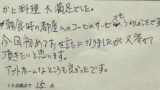 かと料理 大満足でした。
朝食時の部屋へのコーヒーのサービスも うれしかったです。
今回初めてお世話になりましたが又寄せて
頂きたいと思います。
アットホームなところも良かったです。